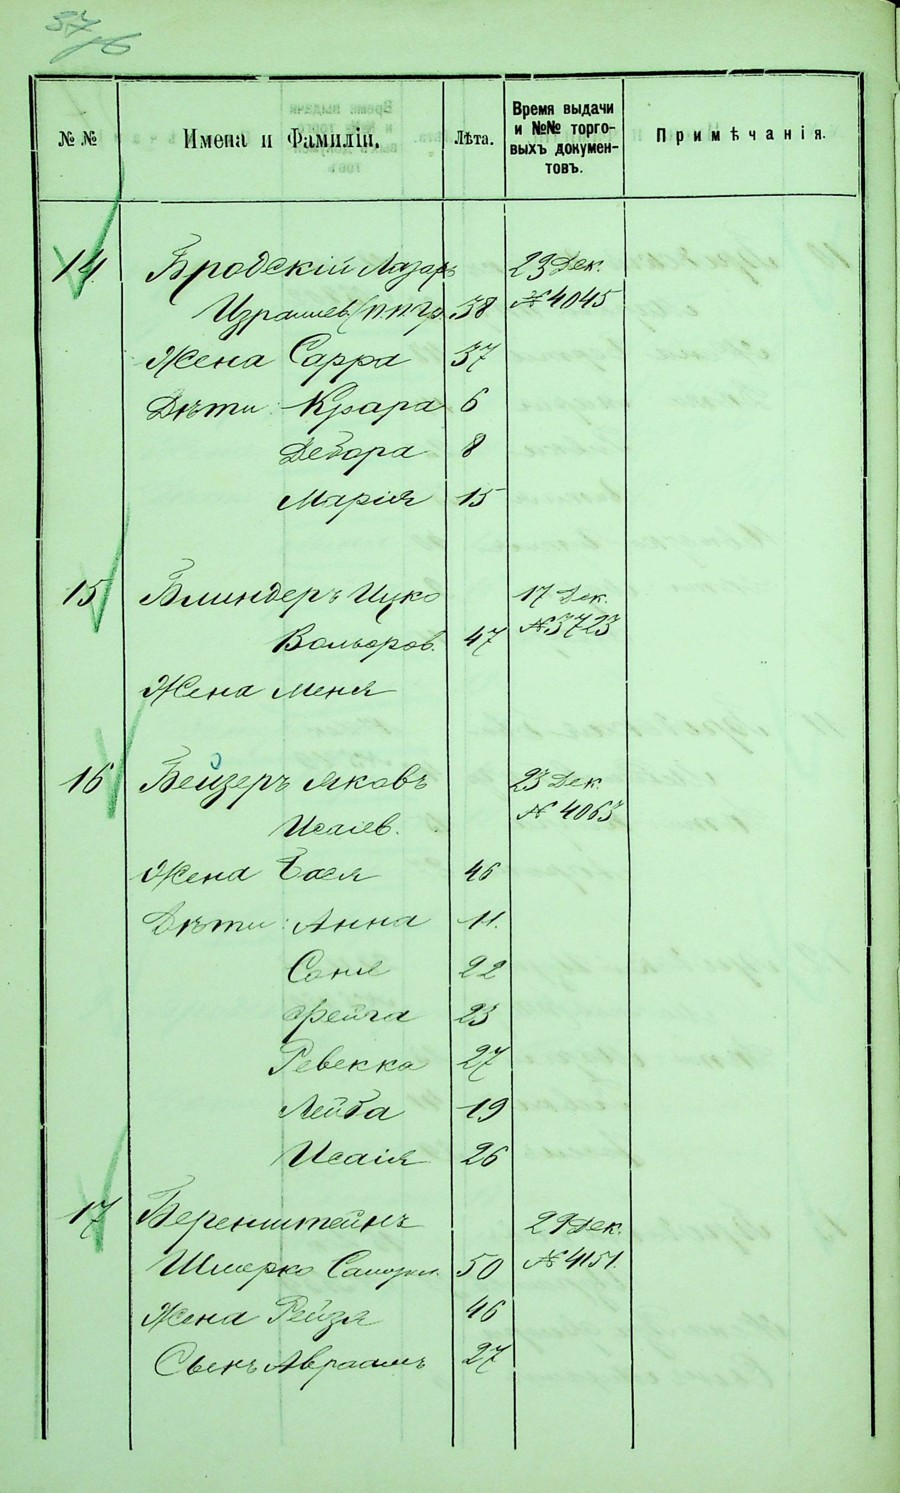 37об
№ №
Имена и Фамиліи.
Лѣта.
Время выдачи
и №№ торго-
выхъ докумен-
товъ.
Примѣчанія.
14 Бродскій Лазарь 23 Дек.
Израилев 38 № 4045
Жена Сарра 37
Дѣти: Клара 6
Дебора 8
Марія 15
15 Блиндеръ Ицко 17 Дек.
Вольфов. 47 № 3723
Жена Меня
16 Бейзеръ Яковъ 23 Дек.
Исаiев. № 4063
Жена Бася 46
Дѣти: Анна 11.
Соня 22
Фейга 23
Ревекка 27
Лейба 19
Исаія 26
17 Беренштейнъ 29 Дек.
Шмерко Самуил. 50 № 4151.
Жена Рейзя 46
Сынъ Авраамъ 27